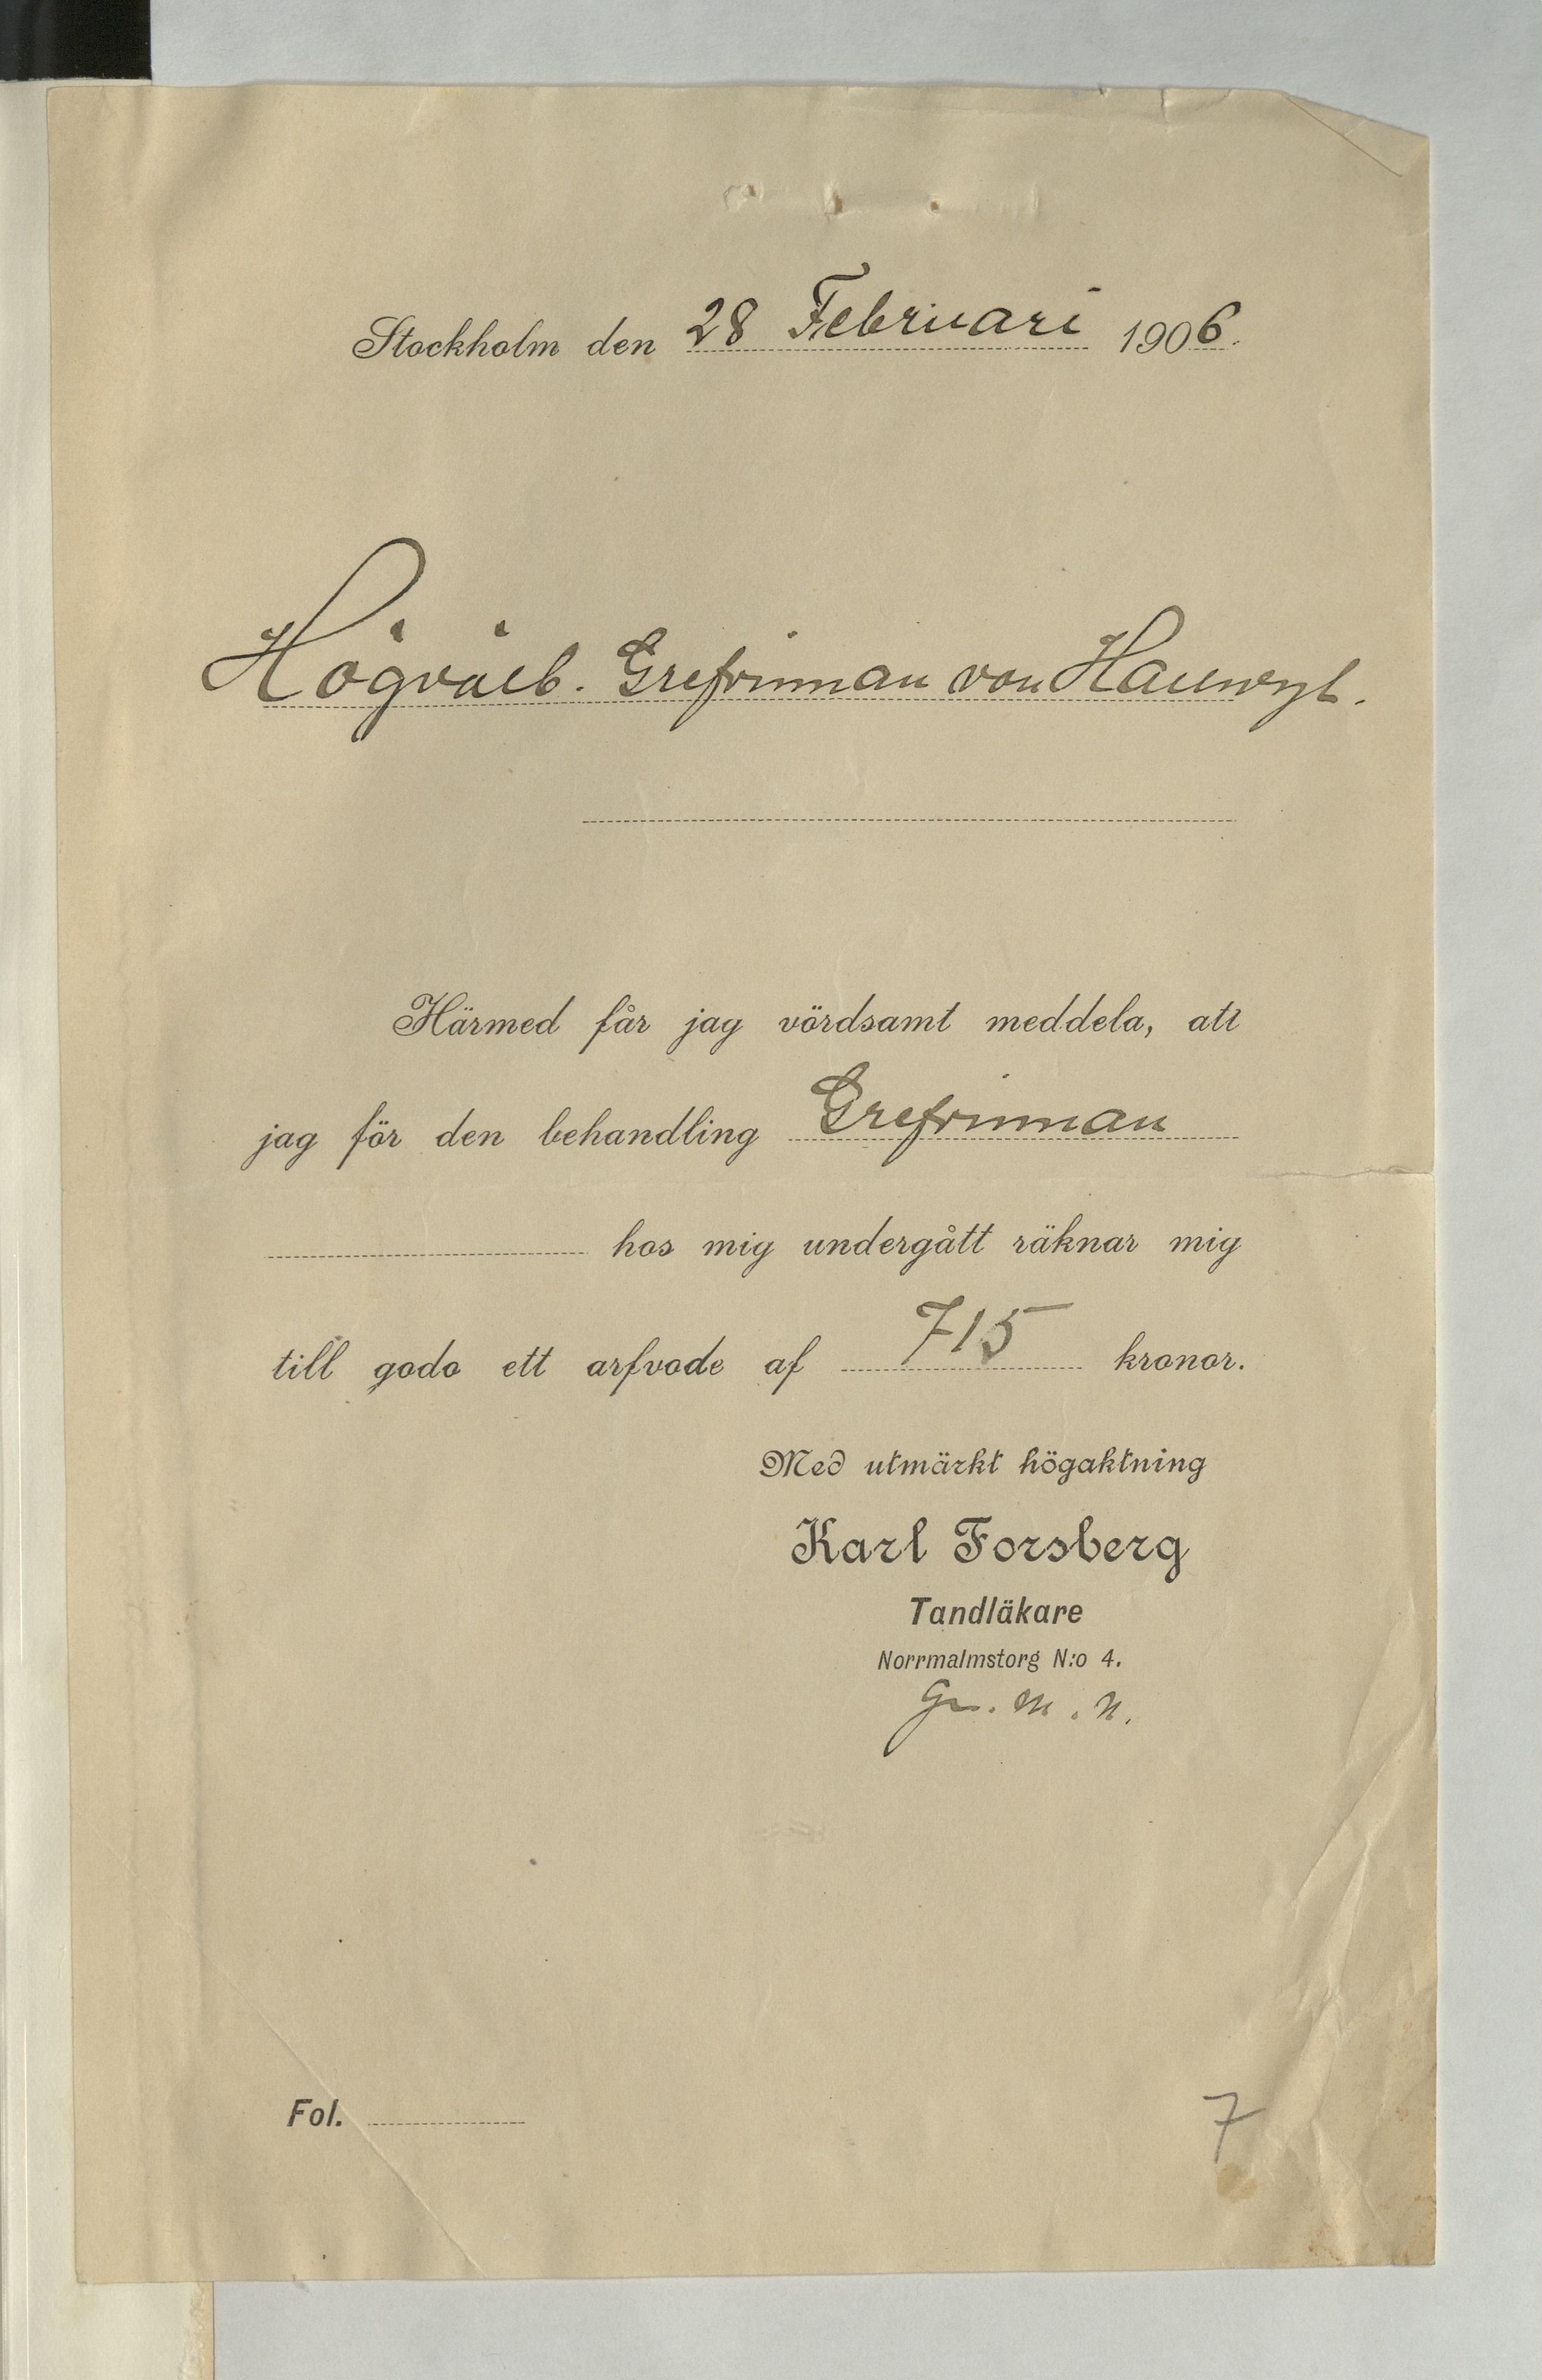 Stockholm den 28 Februari 1906.
Högvälb. Grefvinnan von Hallwyl.
Härmed får jag vördsamt meddela, att
jag för den behandling Grefvinnan
hos mig undergått räknar mig
till godo ett arfvode af 715 kronor.
Med utmärkt högaktning
Karl Forsberg
Tandläkare
Norrmalmstorg N:o 4.
M. N.
Fol.
7